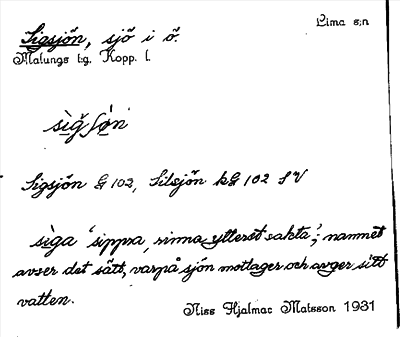 Sigsjön, sjö i ö.
Lima s:n
Malungs t:g. Kopp. l.
sìgʃö̀n
Sigsjön G 102, Silsjön kG 102 SV
siga 'sippra, rinna ytterst sakta'; namnet
avser det sätt, varpå sjön mottager och avger sitt
vatten.
Niss Hjalmar Matsson 1931